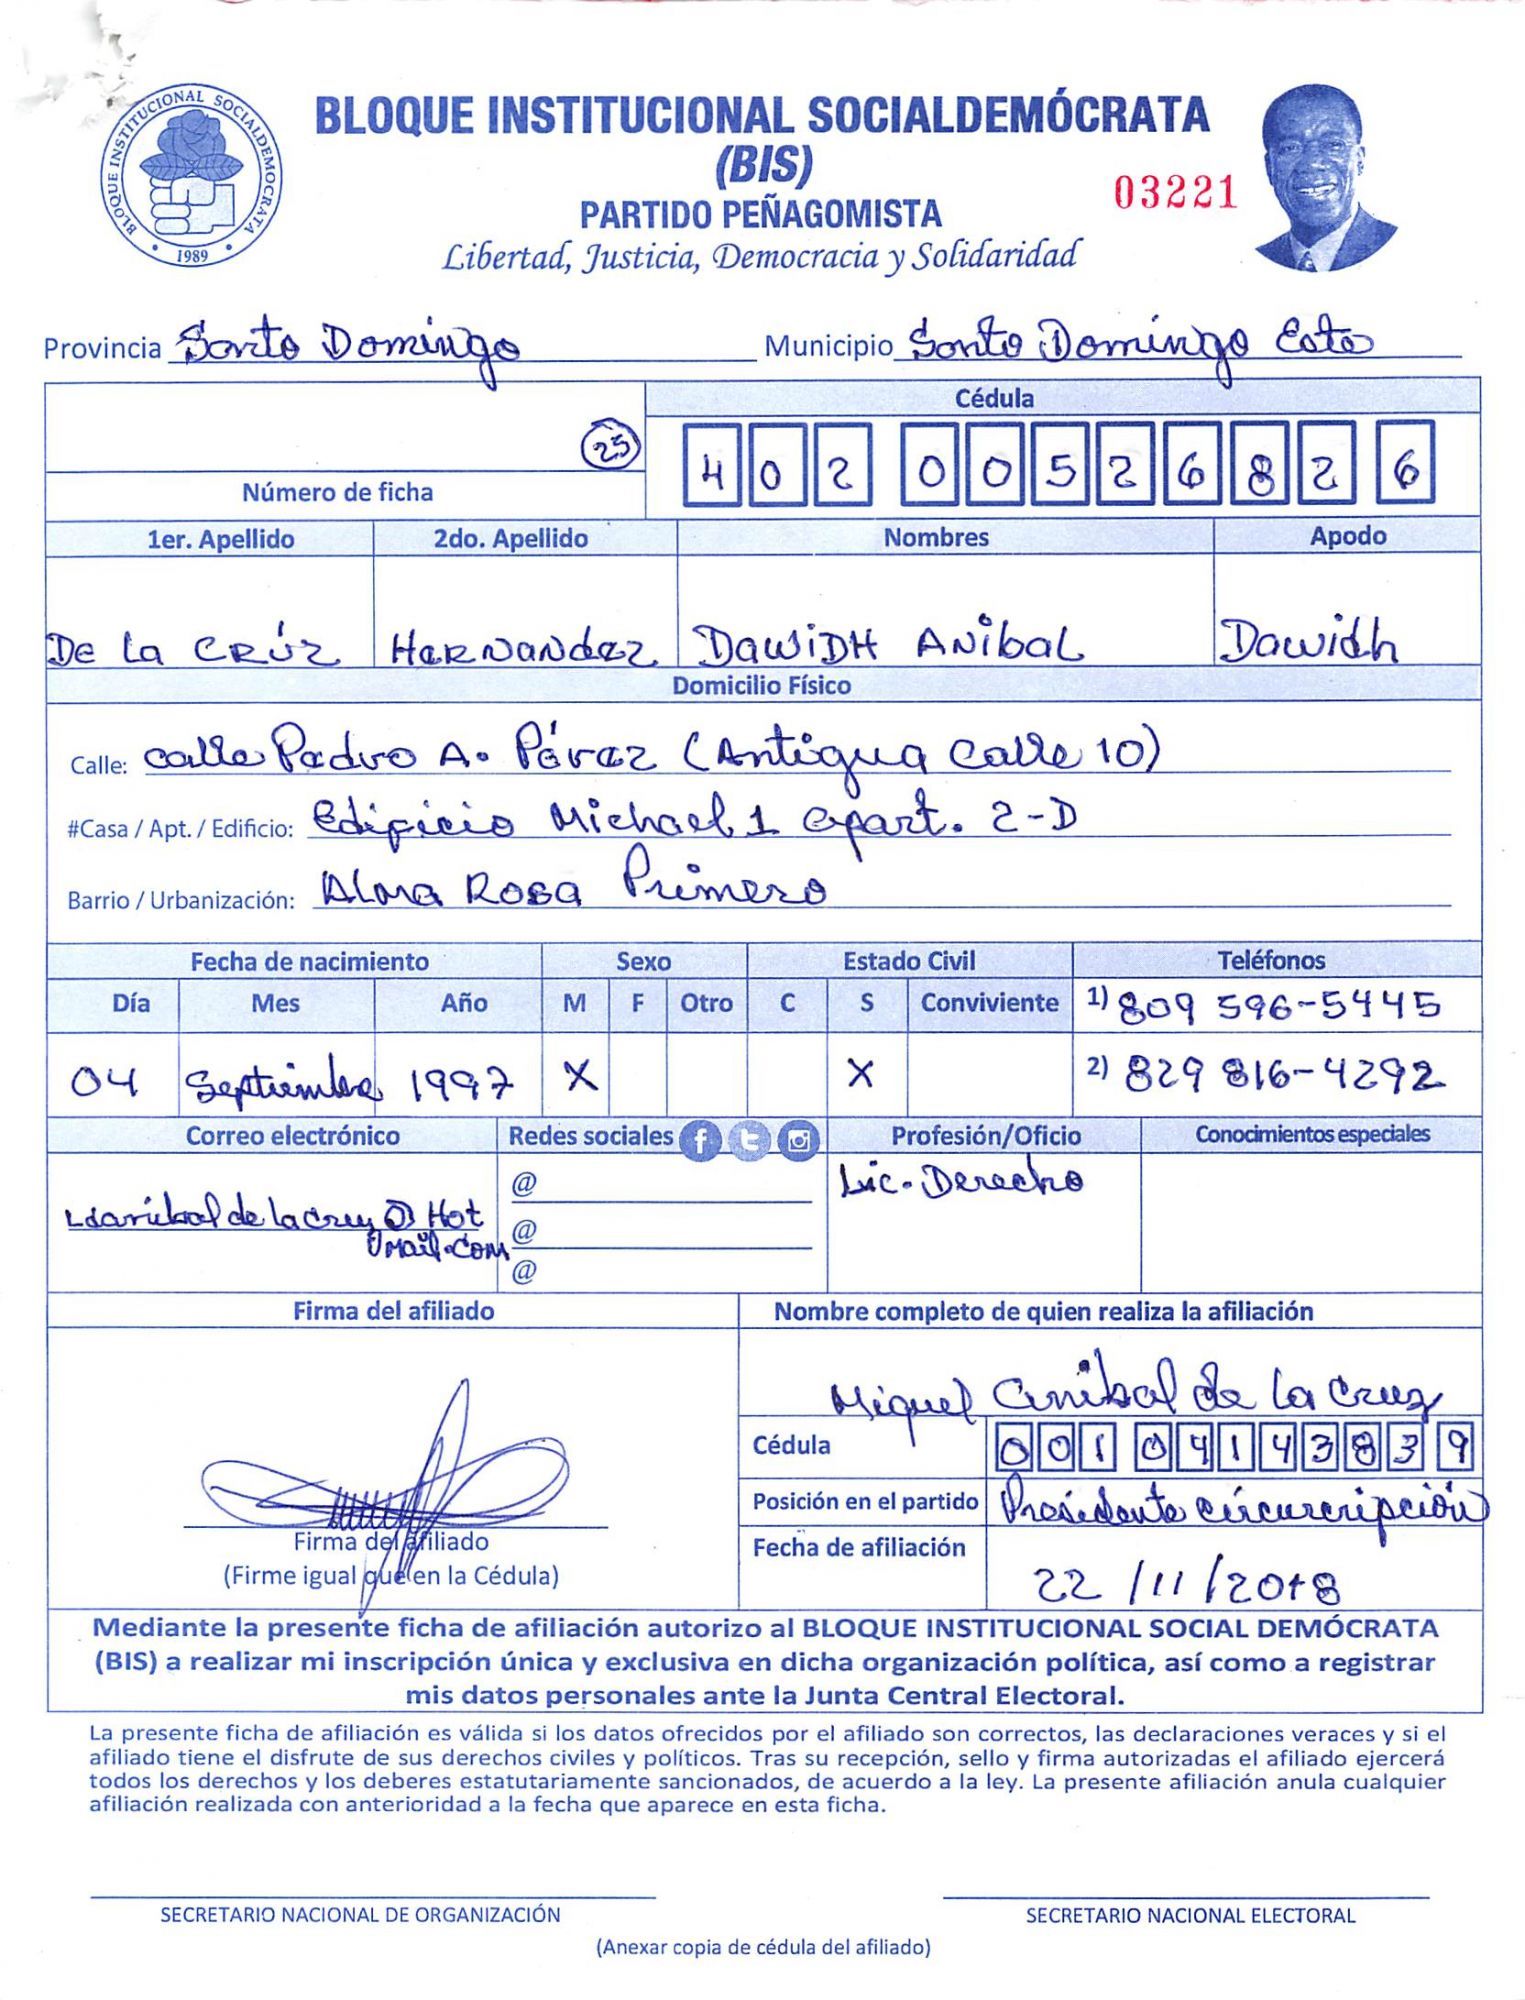 BLOQUE INSTITUCIONAL SOCIALDEMOCRATA
1989
BLOQUE INSTITUCIONAL SOCIALDEMÓCRATA
(BIS)
PARTIDO PEÑAGOMISTA
03221
Libertad, Justicia, Democracia y Solidaridad
Provincia Santo Domingo Municipio Santo Domingo Este
Cédula
25
402 0052682 6
Número de ficha
1er. Apellido 2do. Apellido Nombres Apodo
De La CRúz HeRNaNdez DaWiDH ANibaL Dawidh
Domicilio Físico
Calle: Calle Pedro A. Pérez (Antigua Calle 10)
#Casa / Apt. / Edificio: Edificio Michael 1 apart. 2-D
Barrio / Urbanización: Alma Rosa Primero
Fecha de nacimiento Sexo Estado Civil Teléfonos
Día Mes Año M F Otro C S Conviviente 1) 809 596-5445
04 Septiembre 1997 X X 2) 829 816-4292
Correo electrónico Redes sociales f t Profesión/Oficio Conocimientos especiales
@ Lic. Derecho
Hot
@
mail.com
@
Firma del afiliado Nombre completo de quien realiza la afiliación
Miguel Anibal de La Cruz
Cédula 001 0414383 9
Posición en el partido Presidente circurcripción
Firma del afiliado
Fecha de afiliación 22/11/2018
(Firme igual que en la Cédula)
Mediante la presente ficha de afiliación autorizo al BLOQUE INSTITUCIONAL SOCIAL DEMÓCRATA
(BIS) a realizar mi inscripción única y exclusiva en dicha organización política, así como a registrar
mis datos personales ante la Junta Central Electoral.
La presente ficha de afiliación es válida si los datos ofrecidos por el afiliado son correctos, las declaraciones veraces y si el
afiliado tiene el disfrute de sus derechos civiles y políticos. Tras su recepción, sello y firma autorizadas el afiliado ejercerá
todos los derechos y los deberes estatutariamente sancionados, de acuerdo a la ley. La presente afiliación anula cualquier
afiliación realizada con anterioridad a la fecha que aparece en esta ficha.
SECRETARIO NACIONAL DE ORGANIZACIÓN SECRETARIO NACIONAL ELECTORAL
(Anexar copia de cédula del afiliado)